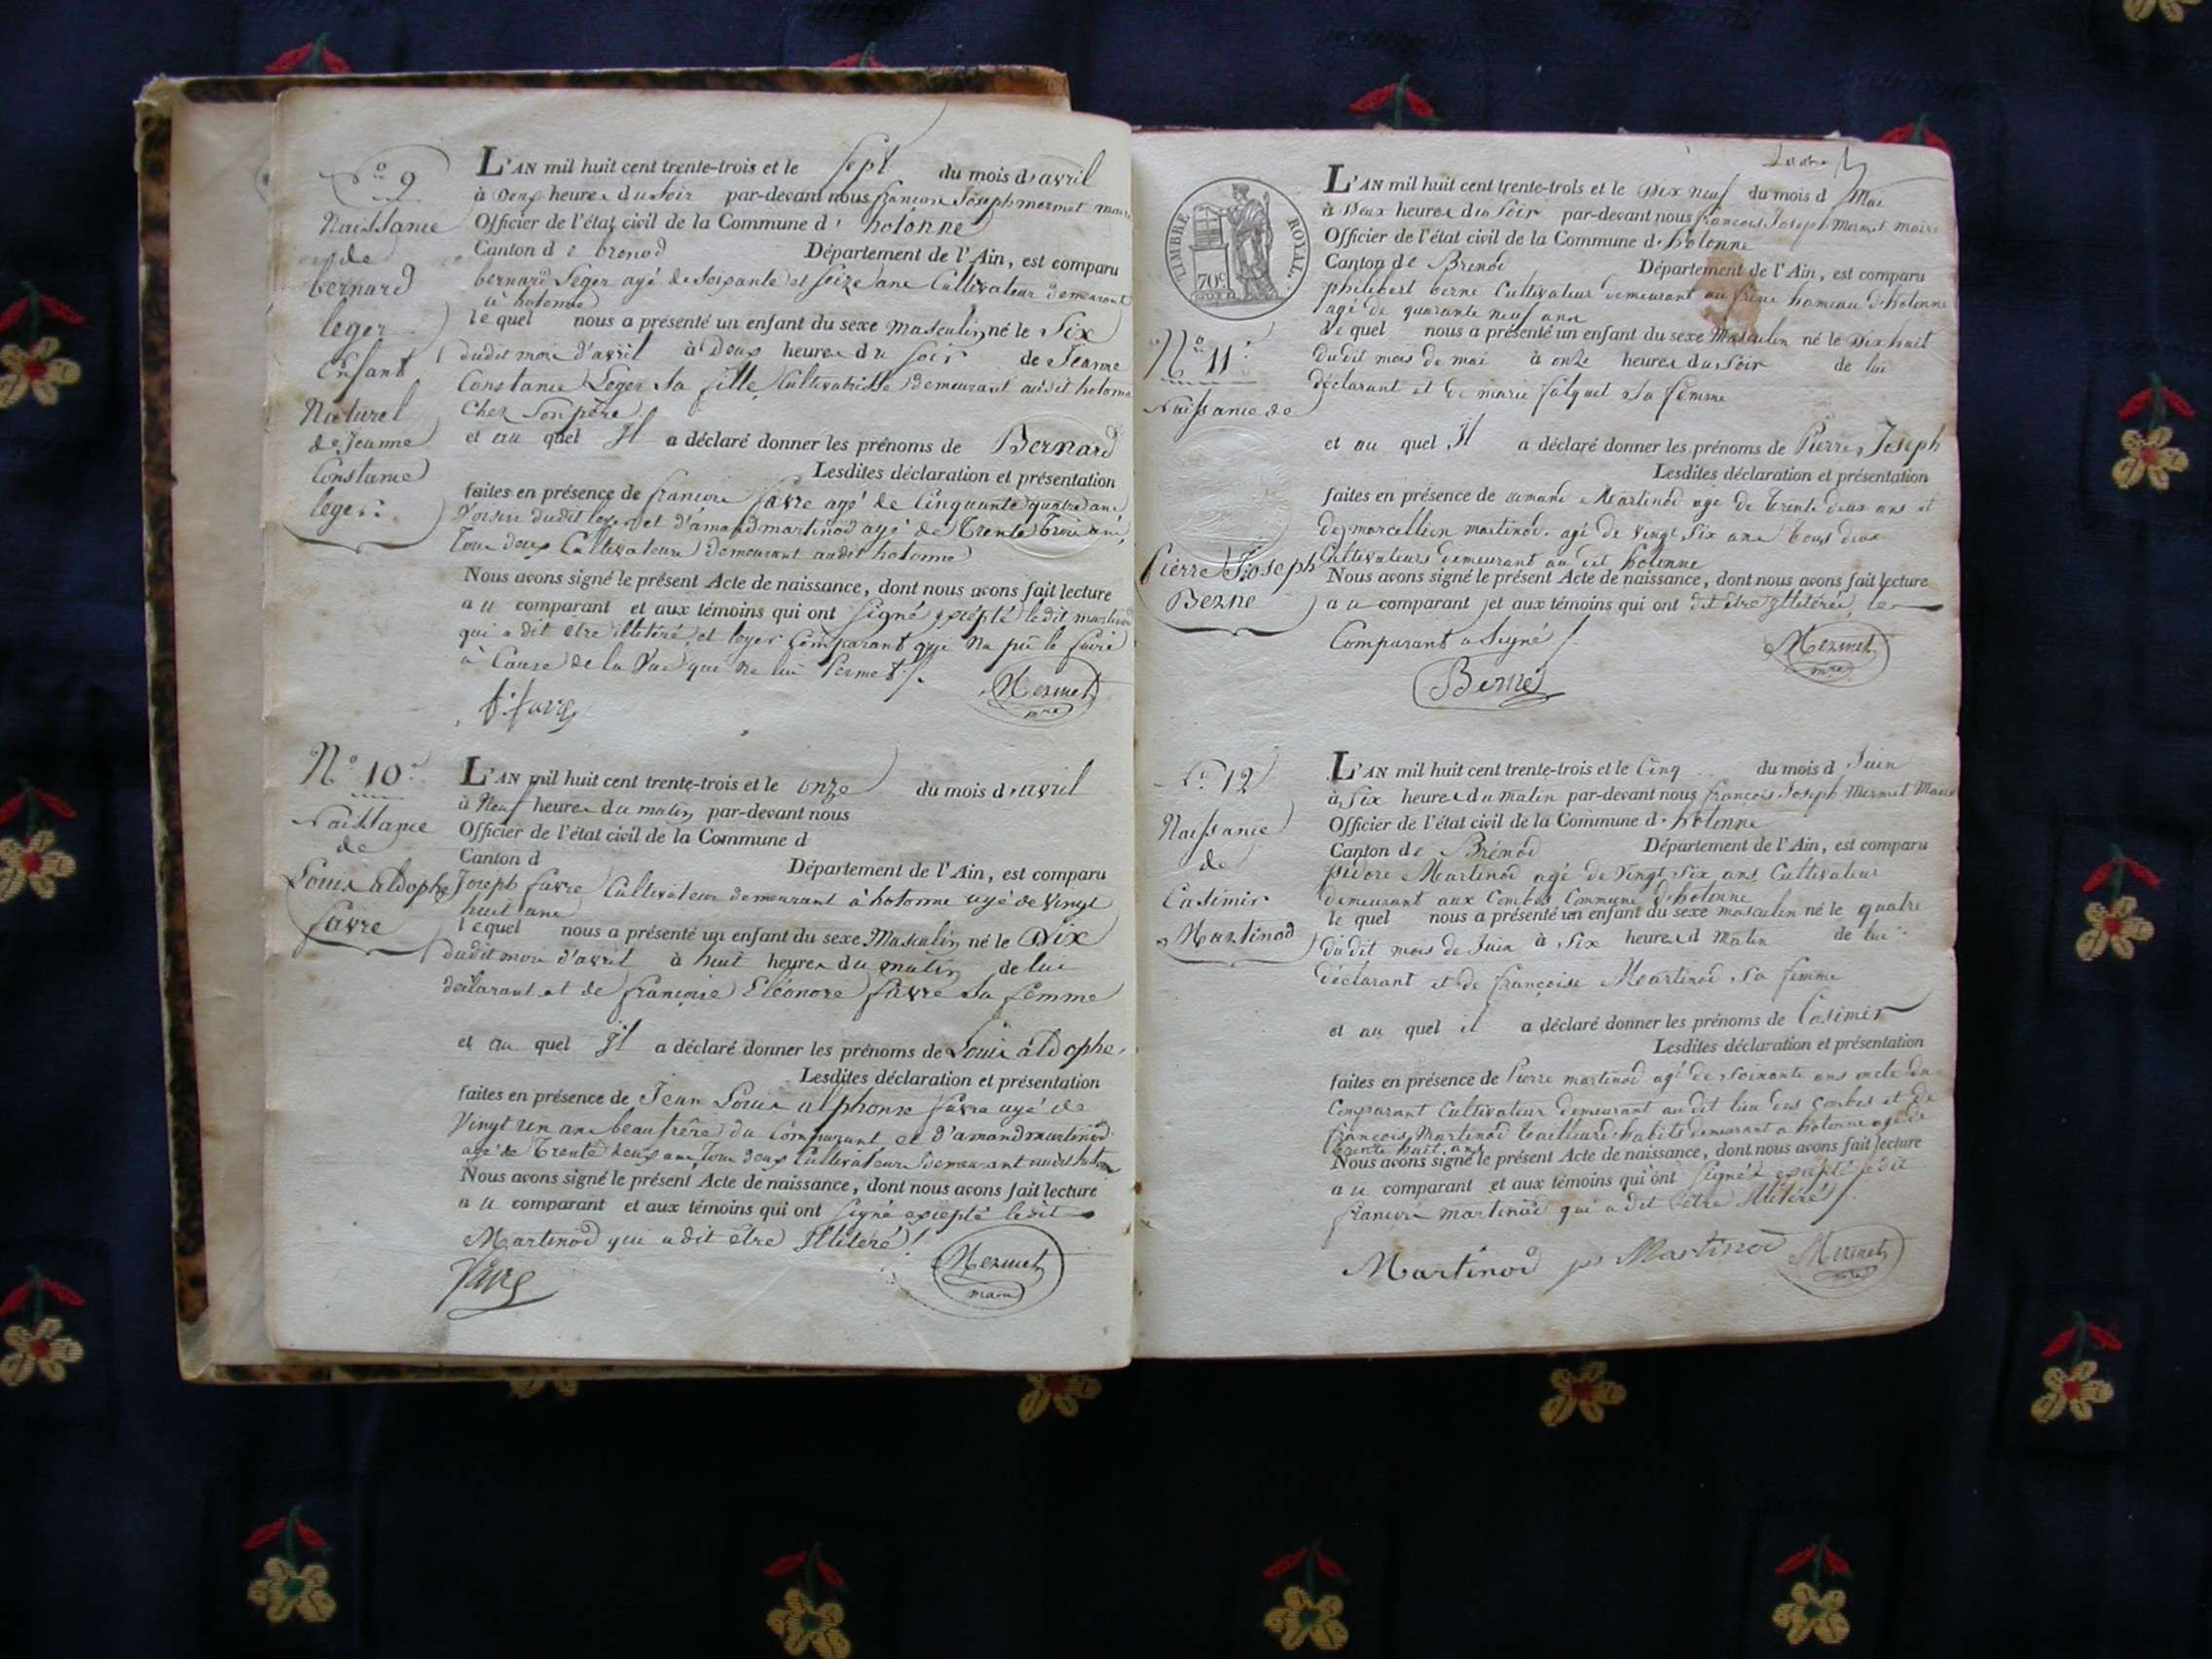 N.o 9
Naissance
de
bernard
leger
Enfant
Naturel
de Jeanne
Constance
leger
L'AN mil huit cent trente-trois et le sept du mois d'avril
à Deux heures du soir par-devant nous françois Joseph mermet maire
Officier de l'état civil de la Commune d' hotonne
Canton de brenod Département de l'Ain, est comparu
bernard Leger agé de soixante et seize ans Cultivateur demeurant
à hotonne
lequel nous a présenté un enfant du sexe masculin né le Six
dudit mois d'avril à Deux heures du soir de Jeanne
Constance Leger sa fille Cultivatrice demeurant audit hotonne
Chez son père
et au quel Il a déclaré donner les prénoms de Bernard
Lesdites déclaration et présentation
faites en présence de françois favre agé de Cinquante quatre ans
voisin dudit leger et d'amand martinod agé de Trente trois ans,
Tous deux Cultivateurs demeurant audit hotonne
Nous avons signé le présent Acte de naissance, dont nous avons fait lecture
au comparant et aux témoins qui ont signé excepté ledit martinod
qui a dit etre illetéré et leger Comparant qui na pu le faire
à Cause de la Vue qui ne lui Permet /.
f. favre Mermet mre
N.o 10
Naissance
de
Louis aldophe
favre
L'AN mil huit cent trente-trois et le onze du mois d'avril
à Neuf heures du matin par-devant nous
Officier de l'état civil de la Commune d
Canton d Département de l'Ain, est comparu
Joseph favre Cultivateur demeurant à hotonne agé de vingt
huit ans
lequel nous a présenté un enfant du sexe Masculin né le Dix
dudit mois d'avril à huit heures du matin de lui
déclarant et de françoise Eléonore favre sa femme
et au quel Il a déclaré donner les prénoms de Louis aldophe.
Lesdites déclaration et présentation
faites en présence de Jean Louis alphonse favre agé de
Vingt un ans beau frère du Comparant et d'amand martinod
agé de Trente deux ans Tous deux Cultivateurs demeurant audit
Nous avons signé le présent Acte de naissance, dont nous avons fait lecture
au comparant et aux témoins qui ont signé excepté ledit
Martinod qui a dit être Illetéré /.
favre Mermet maire
TIMBRE ROYAL.
70c
N.o 11
Naissance de
Pierre Joseph
Berne
L'AN mil huit cent trente-trois et le Dix neuf du mois d Mai
à Deux heures du Soir par-devant nous françois Joseph Mermet maire
Officier de l'état civil de la Commune d'hotonne
Canton de Brenod Département de l'Ain, est comparu
philibert berne Cultivateur demeurant au hameau d'hotonne
agé de quarante neuf ans
le quel nous a présenté un enfant du sexe Masculin né le Dix huit
du dit mois de mai à onze heures du Soir de lui
déclarant et de marie falquet sa femme
et au quel Il a déclaré donner les prénoms de Pierre Joseph
Lesdites déclaration et présentation
faites en présence de amand Martinod age de trente deux ans et
de marcellien martinod agé de vingt Six ans tous deux
Cultivateurs demeurant au dit hotonne
Nous avons signé le présent Acte de naissance, dont nous avons fait lecture
au comparant et aux témoins qui ont dit être Illetérés, le
Comparant a signé /.
Berne Mermet mre
N.o 12
Naissance
de
Casimir
Martinod
L'AN mil huit cent trente-trois et le Cinq du mois d Juin
à Six heures du matin par-devant nous françois Joseph Mermet Maire
Officier de l'état civil de la Commune d'hotonne
Canton de Brénod Département de l'Ain, est comparu
isidore Martinod agé de Vingt Six ans Cultivateur
demeurant aux Combes Commune d'hotonne
le quel nous a présenté un enfant du sexe masculin né le quatre
du dit mois de Juin à Six heures d matin de lui
déclarant et de françoise Martinod sa femme
et au quel il a déclaré donner les prénoms de Casimir
Lesdites déclaration et présentation
faites en présence de Pierre martinod agé de soixante ans oncle du
Comparant Cultivateur demeurant au dit lieu des combes et de
francois Martinod tailleur d'habits demeurant a hotonne agé de
trente huit ans
Nous avons signé le présent Acte de naissance, dont nous avons fait lecture
au comparant et aux témoins qui ont signés excepté ledit
françois martinod qui a dit être Illetéré /.
Martinod p Martinod Mermet